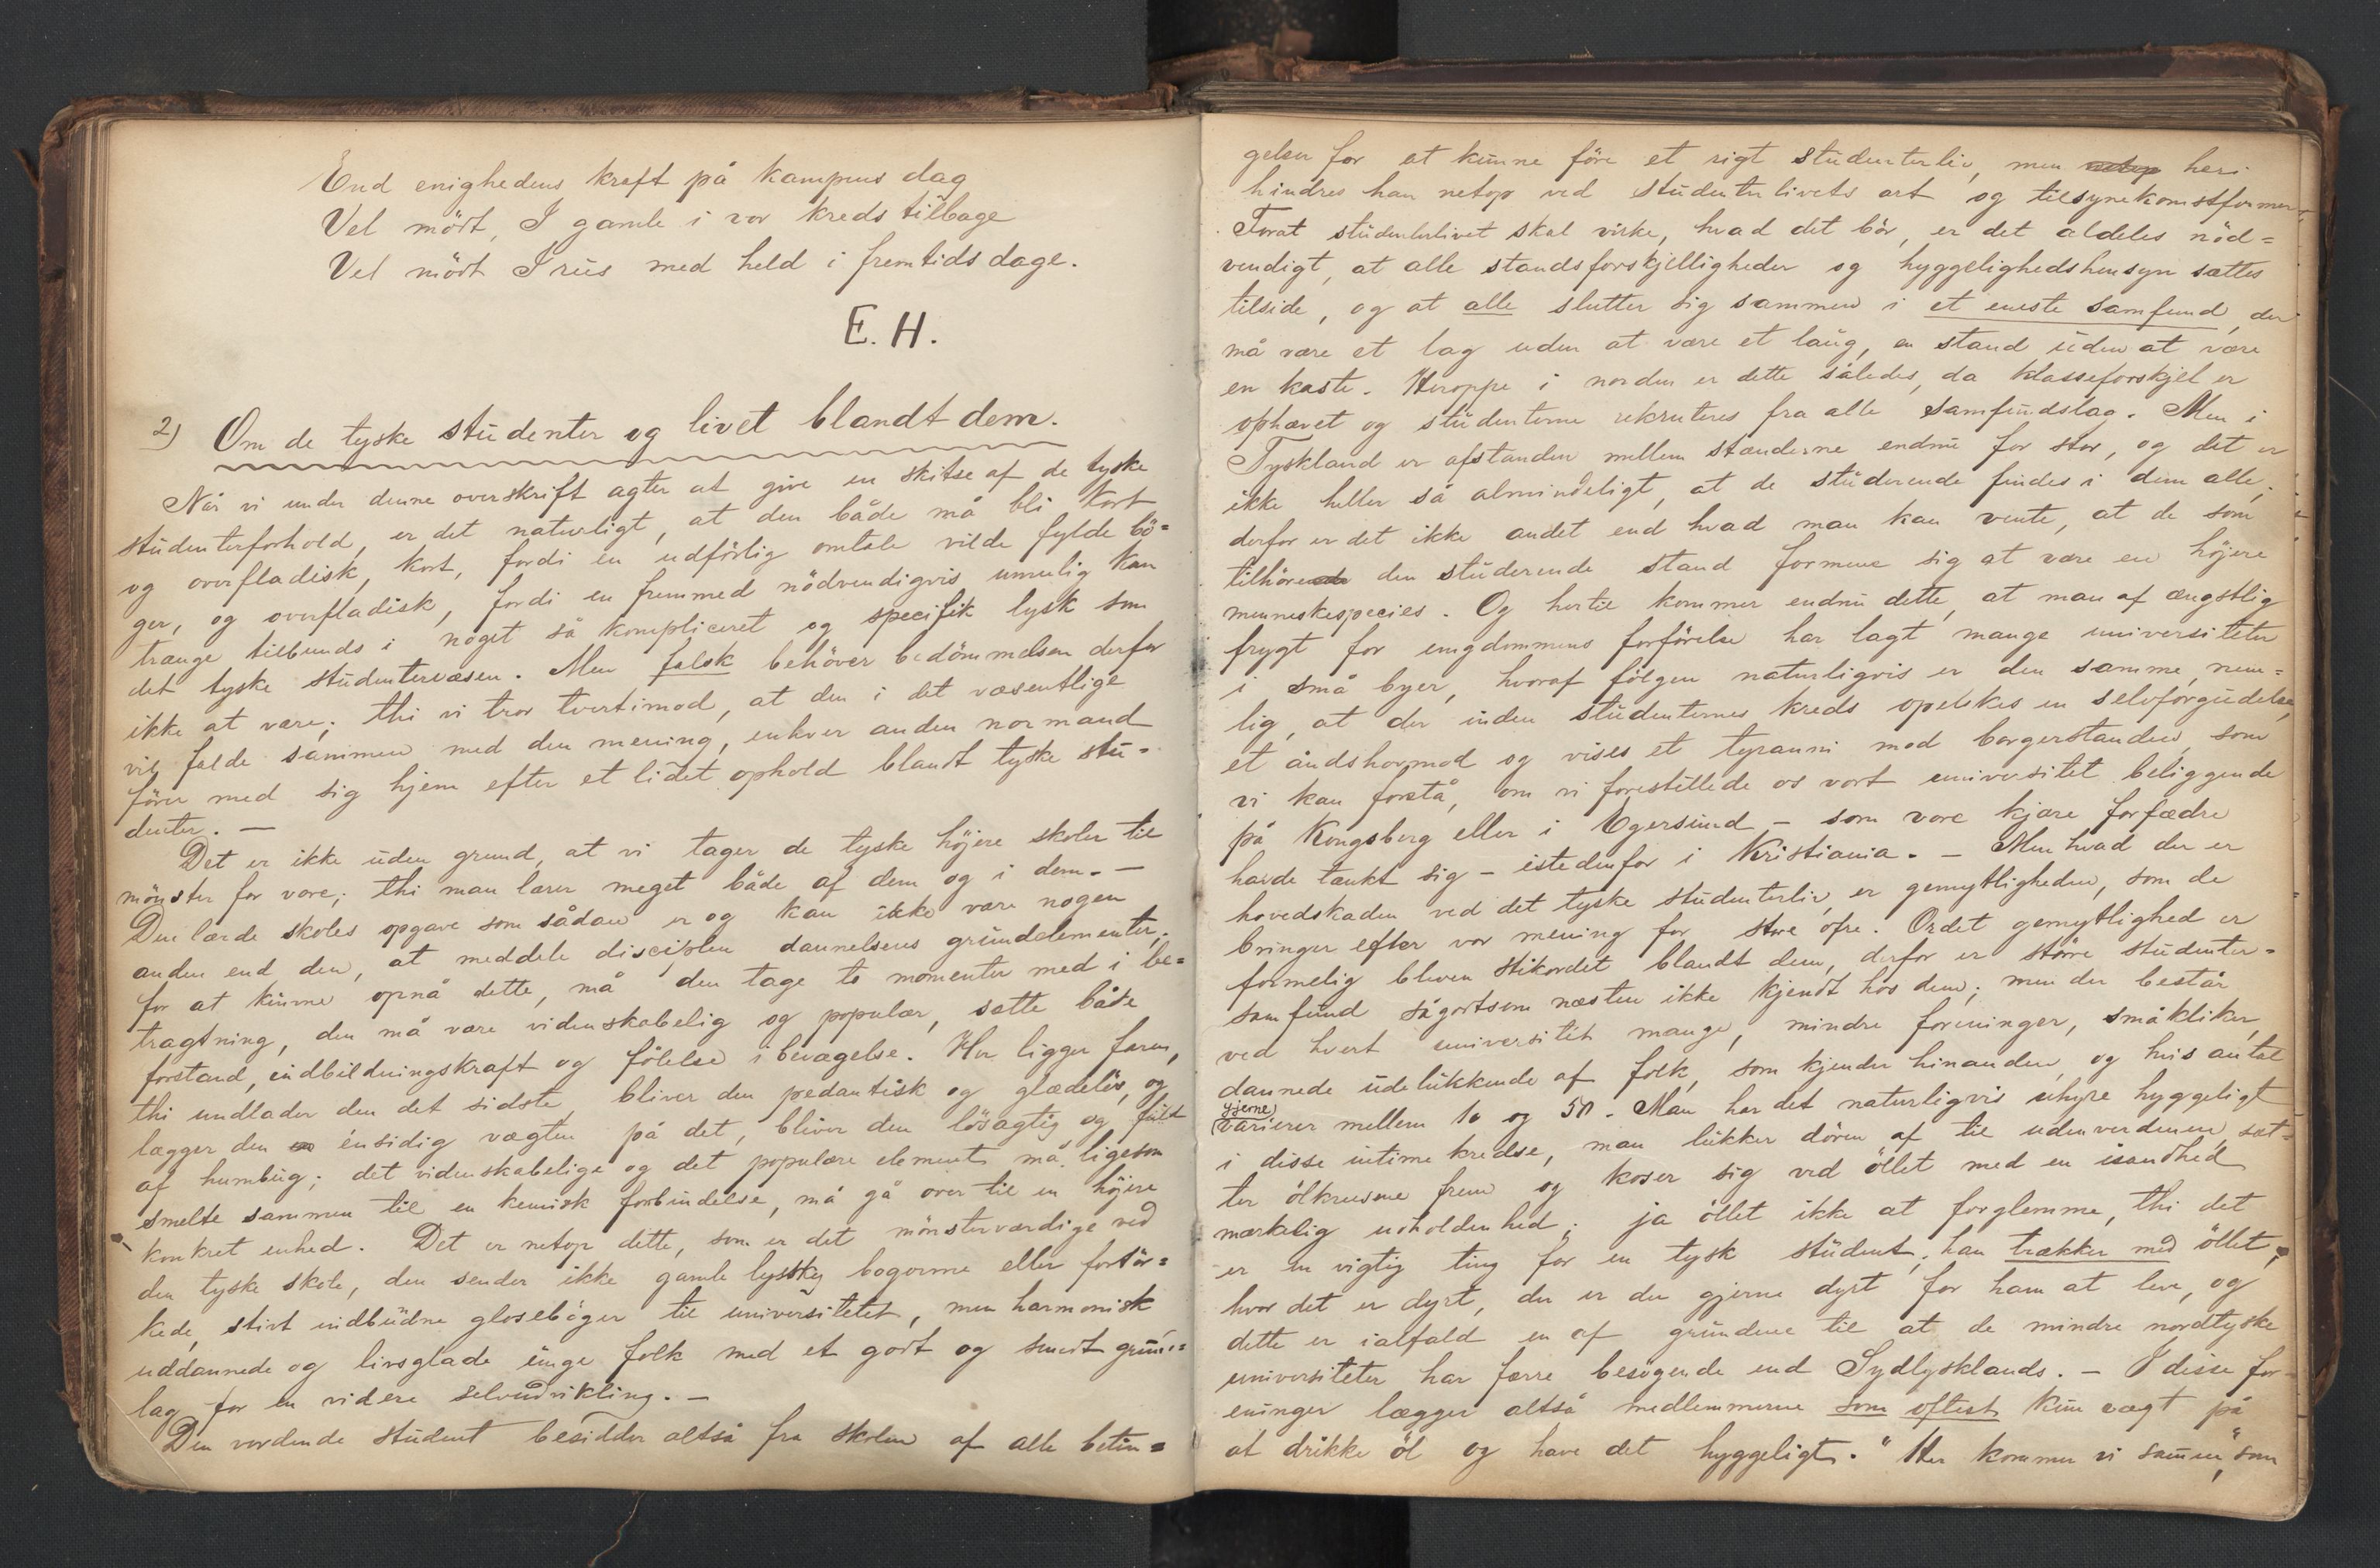 End enighedens kraft på kampens dag
Vel mödt, I gamle i vor kreds tilbage
Vel mödt I rüs med held i fremtids dage.
E. H.
2) Om de tyske studenter og livet blandt dem.
Når vi under denne overskrift agter at give en skitse af de tyske
studenterforhold, er det naturligt, at den både må bli kort
og overfladisk, kort, fordi en udförlig omtale vilde fylde bö=
ger, og overfladisk, fordi en fremmed nödvendigvis umulig kan
trænge tilbunds i noget så kompliceret og specifik tysk som
det tyske studentervæsen. Men falsk behöver bedömmelsen derfor
ikke at være; thi vi tror tvertimod, at den i det væsentlige
vil falde sammen med den mening, enhver anden normand
förer med sig hjem efter et lidet ophold blandt tyske stu=
denter. —
Det er ikke uden grund, at vi tager de tyske höjere skoler til
mönster for vore; thi man lærer meget både af dem og i dem. —
Den lærde skoles opgave som sådan er og kan ikke være nogen
anden end den, at meddele disciplen dannelsens grundelementer;
for at kunne opnå dette, må den tage to momenter med i be=
tragtning, den må være videnskabelig og populær, sætte både
forstand, indbildningskraft og fölelse i bevægelse. Her ligger faren,
thi undlader den det sidste, bliver den pedantisk og glædelös, og
lægger den énsidig vægten på det, bliver den lösagtig og fuld
af humbug; det videnskabelige og det populære element må ligesom
smelte sammen til en kemisk forbindelse, må gå over til en höjere
konkret enhed. Det er netop dette, som er det mönsterværdige ved
den tyske skole, den sender ikke gamle lyssky bogorme eller fortör=
kede, stivt indbudne gloseböger til universitetet, men harmonisk
uddannede og livsglade unge folk med et godt og sundt grund=
lag for en videre selvudvikling. —
Den vordende student besidder altså fra skolen af alle betin=
gelser for at kunne före et rigt studenterliv, men netop heri
hindres han netop ved studenterlivets art og tilsynekomstformer.
Forat studenterlivet skal virke, hvad det bör, er det aldeles nöd=
vendigt, at alle standsforskjelligheder og hyggelighedshensyn sættes
tilside, og at alle slutter sig sammen i et eneste samfund, der
må være et lag uden at være et laug, en stand uden at være
en kaste. Heroppe i norden er dette således, da klasseforskjel er
ophævet og studenterne rekruteres fra alle samfundslag. Men i
Tyskland er afstanden mellem stænderne endnu for stor, og det er
ikke heller så almindeligt, at de studerende findes i dem alle;
derfor er det ikke andet end hvad man kan vente, at de som
tilhörer den studerende stand formene sig at være en höjere
menneskespecies. Og hertil kommer endnu dette, at man af ængstlig
frygt for ungdommens forförelse har lagt mange universiteter
i små byer, hvoraf fölgen naturligvis er den samme, nem=
lig, at der inden studenternes kreds opelskes en selvforgudelse,
et åndshovmod og vises et tyranni mod borgerstanden, som
vi kan forstå, om vi forestillede os vort universitet beliggende
på Kongsberg eller i Egersund — som vore kjære forfædre
havde tænkt sig — istedenfor i Kristiania. — Men hvad der er
hovedskaden ved det tyske studenterliv, er gemytligheden, som de
bringer efter vor mening for store ofre. Ordet gemytlighed er
formelig bleven stikordet blandt dem, derfor er större studenter=
samfund sågodtsom næsten ikke kjendt hos dem; men der består
ved hvert universitet mange, mindre foreninger, småkliker,
dannede udelukkende af folk, som kjender hinanden, og hvis antal
(gjerne) varierer mellem 10 og 50. Man har det naturligvis uhyre hyggeligt
i disse intime kredse, man lukker dören af til udenverdenen, sæt=
ter ölkrusene frem og koser sig ved öllet med en isandhed
mærkelig udholdenhed; ja öllet ikke at forglemme, thi det
er en vigtig ting for en tysk student; han trækker med öllet;
hvor det er dyrt, der er der gjerne dyrt for ham at leve, og
dette er ialfald en af grundene til at de mindre nordtyske
universiteter har færre besögende end Sydtysklands. — I disse for=
eninger lægger altså medlemmerne som oftest kun vægt på
at drikke öl og have det hyggeligt. "Her kommer vi sammen", som